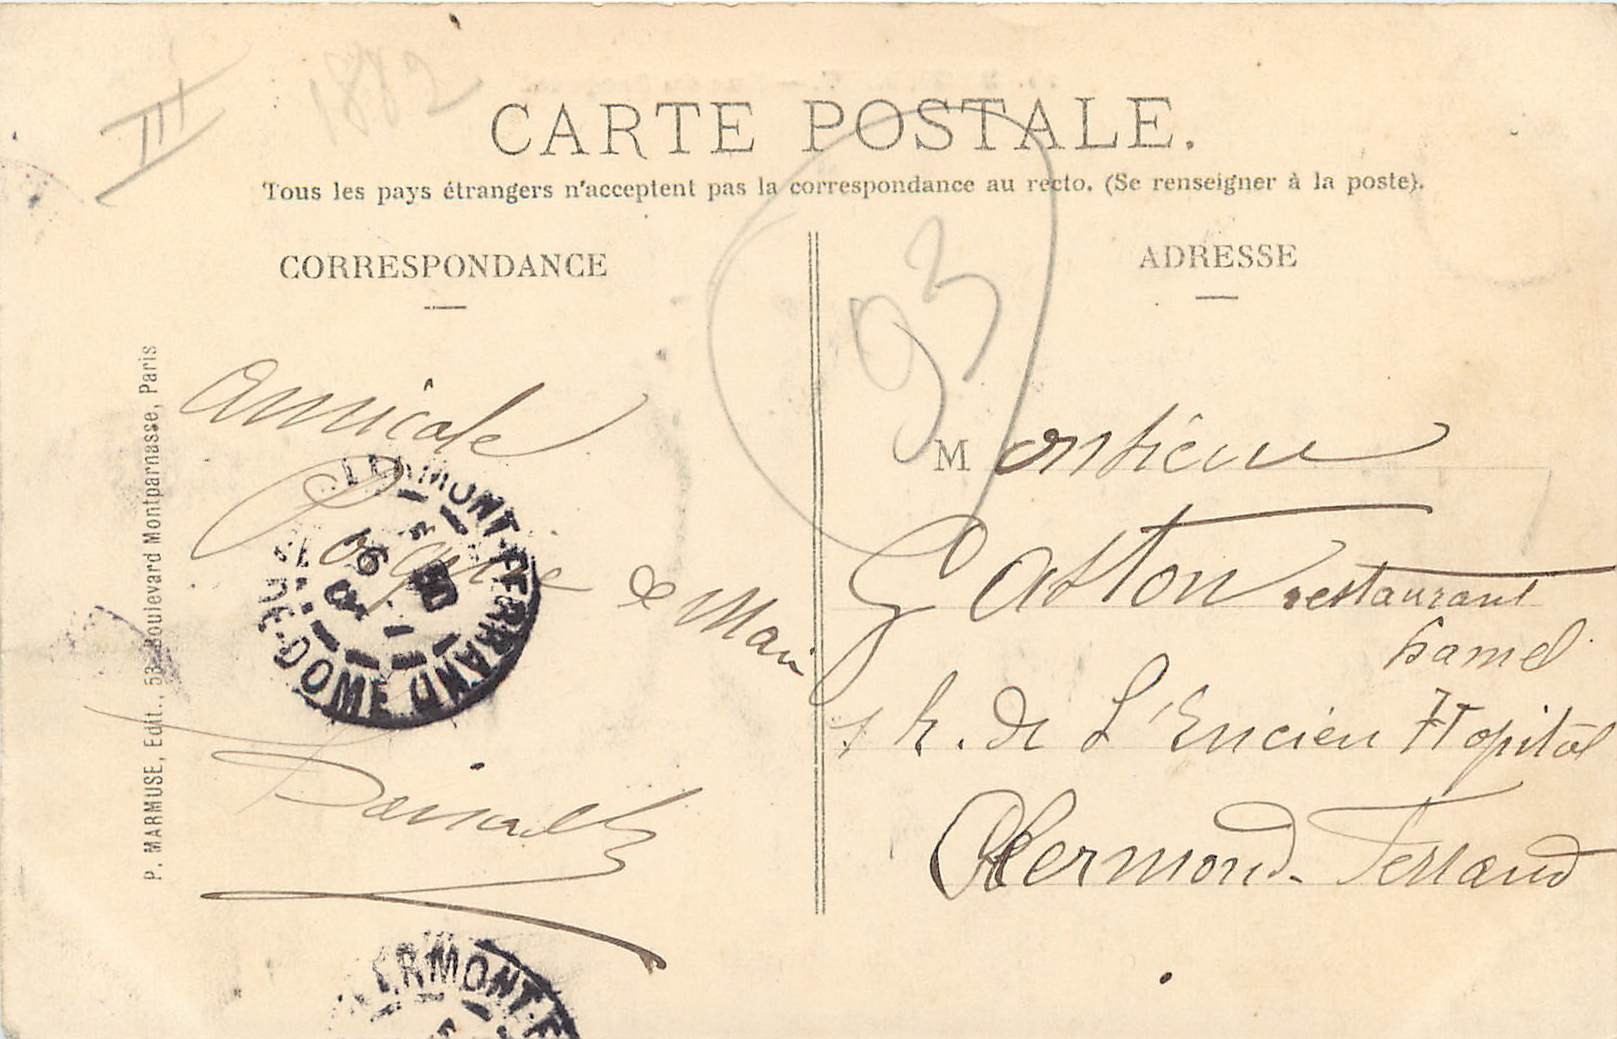 III
1882
CARTE POSTALE.
Tous les pays étrangers n'acceptent pas la correspondance au recto. (Se renseigner à la poste).
CORRESPONDANCE
ADRESSE
93
P. MARMUSE, Edit., 53, Boulevard Montparnasse, Paris
Amicale
Pognée de Main
CLERMONT-FERRAND
PUY-DE-DOME
Monsieur
Gaston restaurant
hamel
1 R. de L'Encien Hopital
Clermond-Ferrand
CLERMONT-F